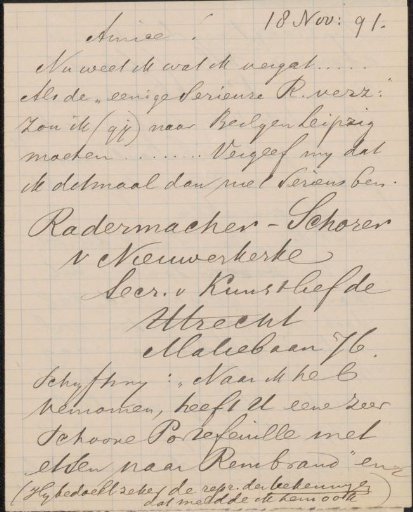 18 Nov: 91.
Amice!
Nu weet ik wat ik vergat.....
Als de „eenige serieuze R. verz:"
zou ik (gij) naar Berlijn Leipzig
moeten ........ Vergeef my dat
ik ditmaal dan niet serieus ben.
Radermacher-Schorer
v Nieuwerkerke
Secr. v Kunstliefde
Utrecht
Maliebaan 76.
Schryft my: „Naar ik heb
vernomen, heeft U eene zeer
Schoone Portefeuille met
etsen naar Rembrand" enz
(Hy bedoelt zeker de repr. der teekeningen
dat meldde ik hem ook)